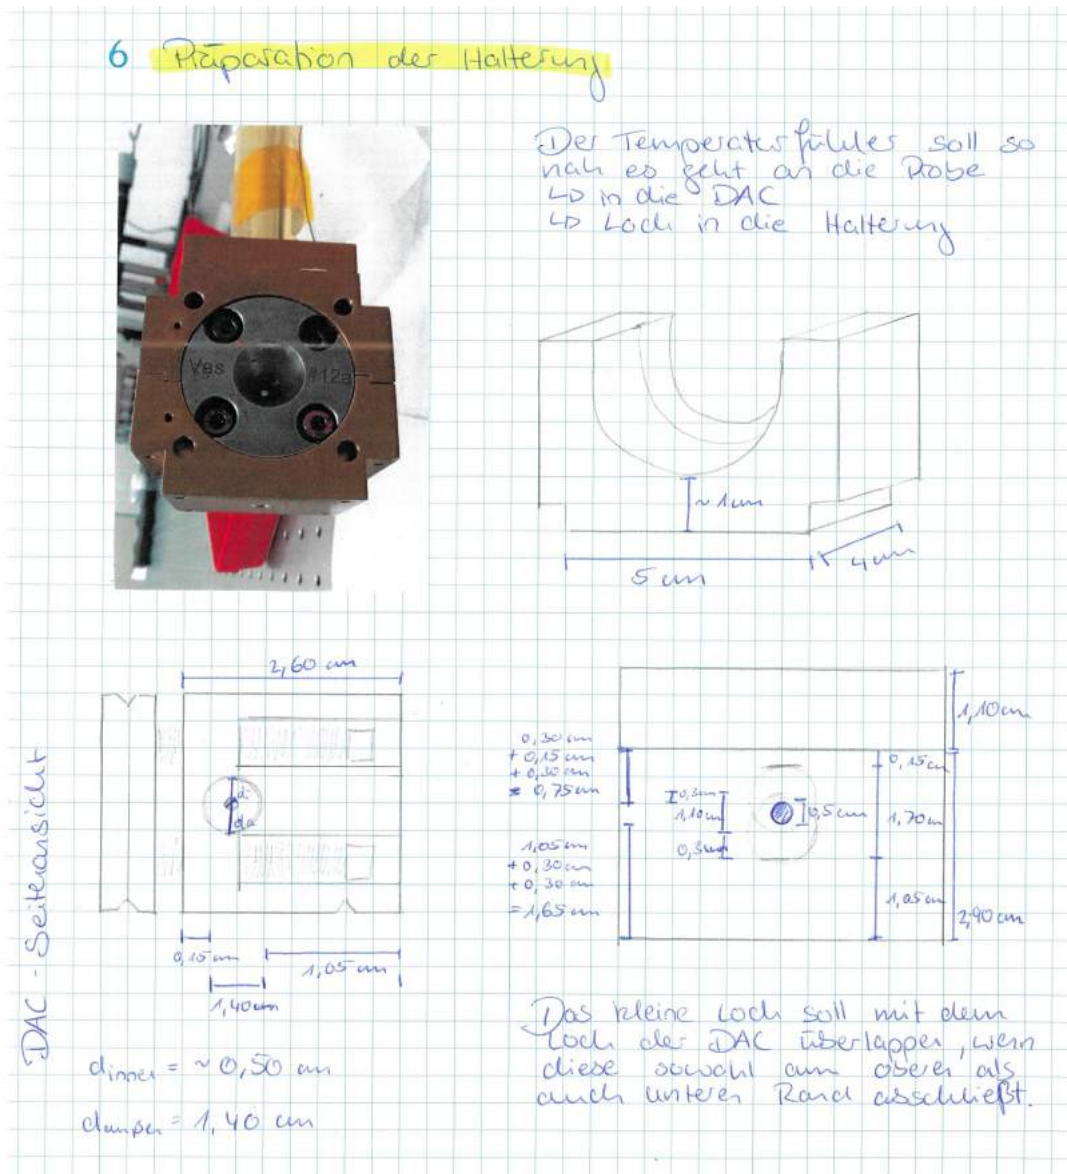 6 Präparation der Halterung
Der Temperaturfühler soll so
nah es geht an die Probe
↳ in die DAC
↳ Loch in die Halterung
Vas #12a
~ 1cm
5 cm
4cm
DAC-Seitenansicht
2,60 cm
di
da
0,15 cm
1,05 cm
1,40cm
dinnen = ~ 0,50 cm
daußen = 1,40 cm
0,30 cm
+ 0,15 cm
+ 0,30 cm
= 0,75cm
1,05cm
+ 0,30 cm
+ 0,30 cm
= 1,65 cm
0,3cm
1,10cm
0,3cm
0,5cm
1,10cm
0,15cm
1,70cm
1,05cm
2,90cm
Das kleine Loch soll mit dem
Loch der DAC überlappen, wenn
diese sowohl am oberen als
auch unteren Rand abschließt.